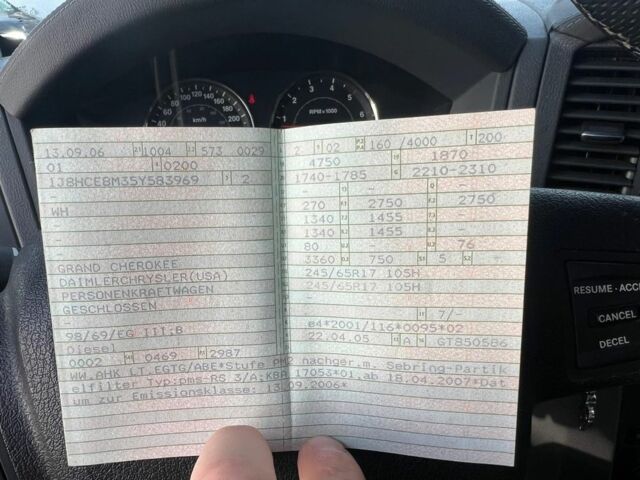 40 60 80 100 120 140 160 180 200
km/h
1 2 3 4 5 6
RPM x 1000
13.09.06 2.1 1004 2.2 573 0029
01 0200
1J8HCE8M35Y583969 2
-
-
WH
-
-
GRAND CHEROKEE
DAIMLERCHRYSLER(USA)
PERSONENKRAFTWAGEN
GESCHLOSSEN
-
98/69/EG III;B
Diesel
0002 0469 2987
2 02 160 /4000 200
4750 1870
1740-1785 G 2210-2310
- -
270 2750 2750
1340 1455 -
1340 1455 -
80 - 76
3360 750 5 -
245/65R17 105H
245/65R17 105H
-
- 7/-
e4*2001/116*0095*02
22.04.05 A GT850586
WW.AHK LT.EGTG/ABE*Stufe PM2 nachger.m. Sebring-Partik
elfilter Typ:pms-RS 3/A;KBA 17053*01,ab 18.04.2007*Dat
um zur Emissionsklasse: 13.09.2006*
RESUME - ACC
CANCEL
DECEL